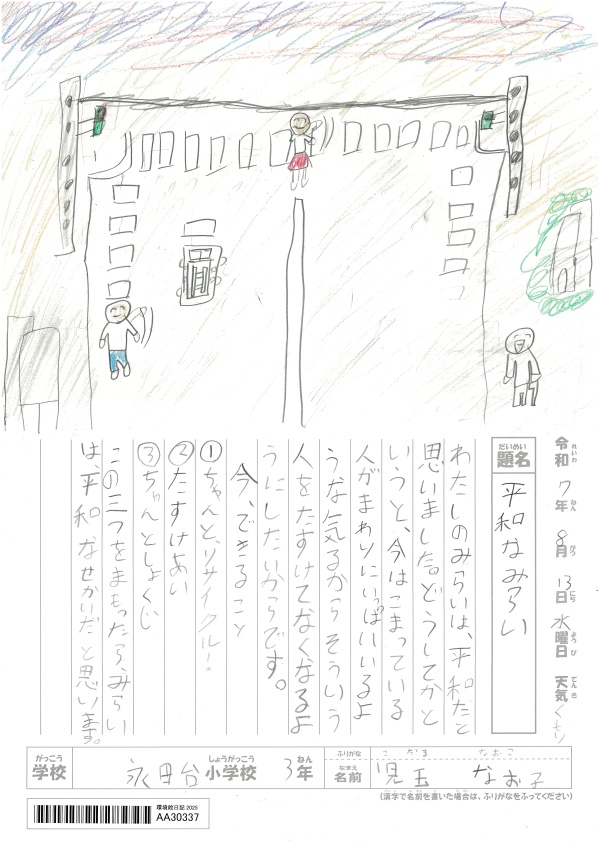 令和 7年 8月 13日 水曜日 天気 くもり
れいわ ねん がつ にち ようび てんき
だいめい
題名 平和なみらい
わたしのみらいは、平和だと
思いました。どうしてかと
いうと、今はこまっている
人がまわりにいっぱいいるよ
うな気るからそういう
人をたすけてなくなるよ
うにしたいからです。
今、できること
①ちゃんと、リサイクル!
②たすけあい
③ちゃんとしょくじ
この三つをまもったら、みらい
は、平和なせかいだと思います。
がっこう しょうがっこう ねん
学校 永田台小学校 3年
ふりがな こだま なおこ
なまえ
名前 児玉 なお子
(漢字で名前を書いた場合は、ふりがなをふってください)
環境絵日記 2025
AA30337